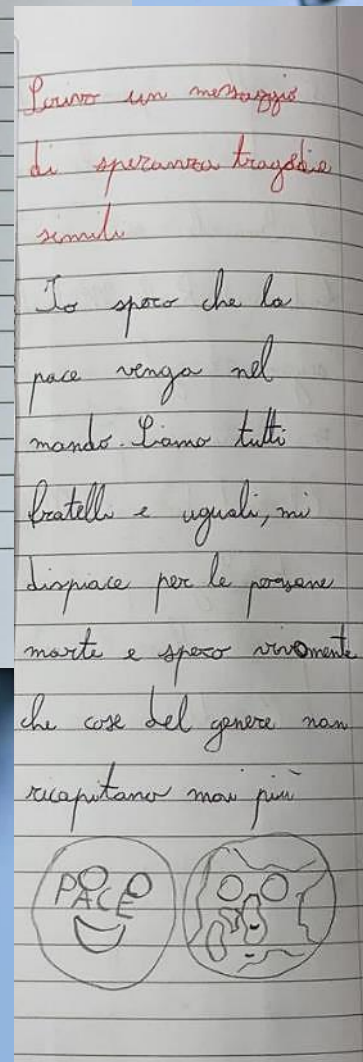 Scrivo un messaggio
di speranza tragedie
simili
Io spero che la
pace venga nel
mondo. Siamo tutti
fratelli e uguali, mi
dispiace per le persone
morte e spero vivamente
che cose del genere non
ricapitano mai più
PACE